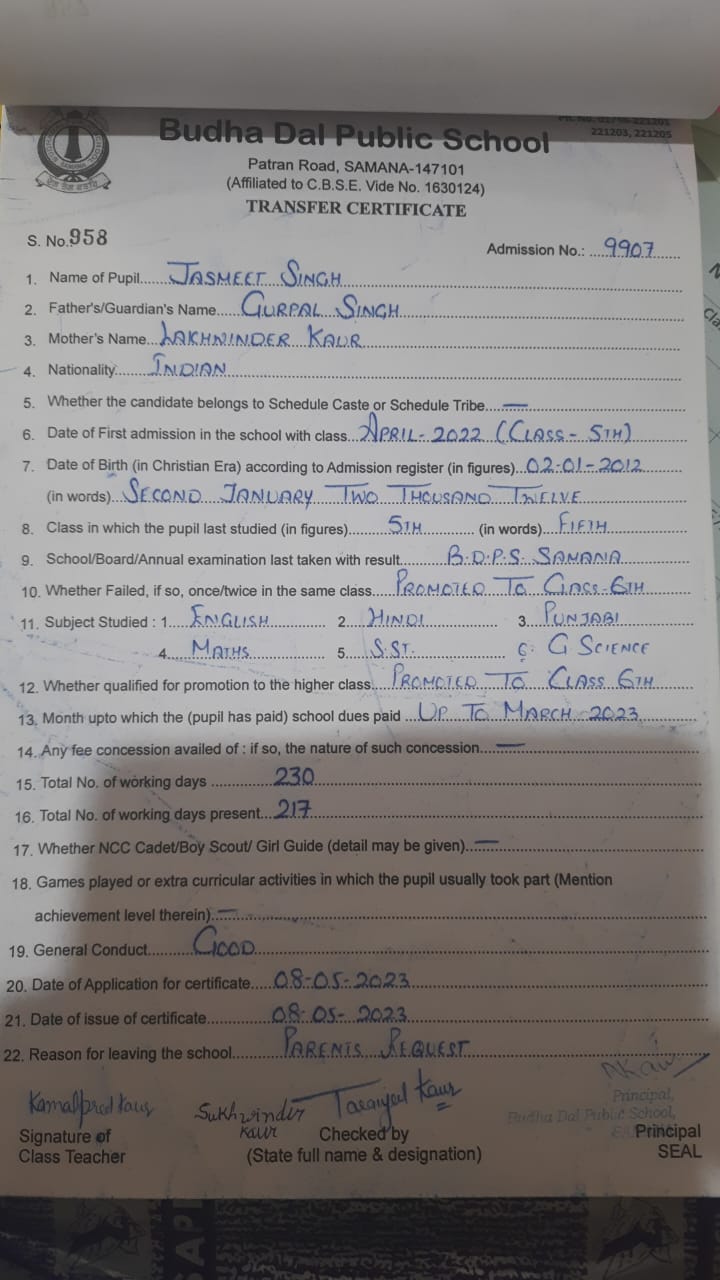 221203, 221205
Budha Dal Public School
Patran Road, SAMANA-147101
(Affiliated to C.B.S.E. Vide No. 1630124)
TRANSFER CERTIFICATE
S. No. 958
Admission No.: 9907
1. Name of Pupil JASMEET SINGH
2. Father's/Guardian's Name GURPAL SINGH
3. Mother's Name LAKHWINDER KAUR
4. Nationality INDIAN
5. Whether the candidate belongs to Schedule Caste or Schedule Tribe —
6. Date of First admission in the school with class APRIL-2022 (CLASS-5TH)
7. Date of Birth (in Christian Era) according to Admission register (in figures) 02-01-2012
(in words) SECOND JANUARY TWO THOUSAND TWELVE
8. Class in which the pupil last studied (in figures) 5TH (in words) FIFTH
9. School/Board/Annual examination last taken with result B.D.P.S. SAMANA
10. Whether Failed, if so, once/twice in the same class PROMOTED TO CLASS-6TH
11. Subject Studied : 1 ENGLISH 2 HINDI 3 PUNJABI
4 MATHS 5 S.ST. 6. G SCIENCE
12. Whether qualified for promotion to the higher class PROMOTED TO CLASS 6TH
13. Month upto which the (pupil has paid) school dues paid UP TO MARCH-2023
14. Any fee concession availed of : if so, the nature of such concession —
15. Total No. of working days 230
16. Total No. of working days present 217
17. Whether NCC Cadet/Boy Scout/ Girl Guide (detail may be given) —
18. Games played or extra curricular activities in which the pupil usually took part (Mention
achievement level therein) —
19. General Conduct GOOD
20. Date of Application for certificate 08-05-2023
21. Date of issue of certificate 08-05-2023
22. Reason for leaving the school PARENTS REQUEST
Kamalpreet Kaur Sukhwinder Kaur Taranjeet Kaur
Principal,
Budha Dal Public School,
Signature of Class Teacher
Checked by
(State full name & designation)
Principal
SEAL